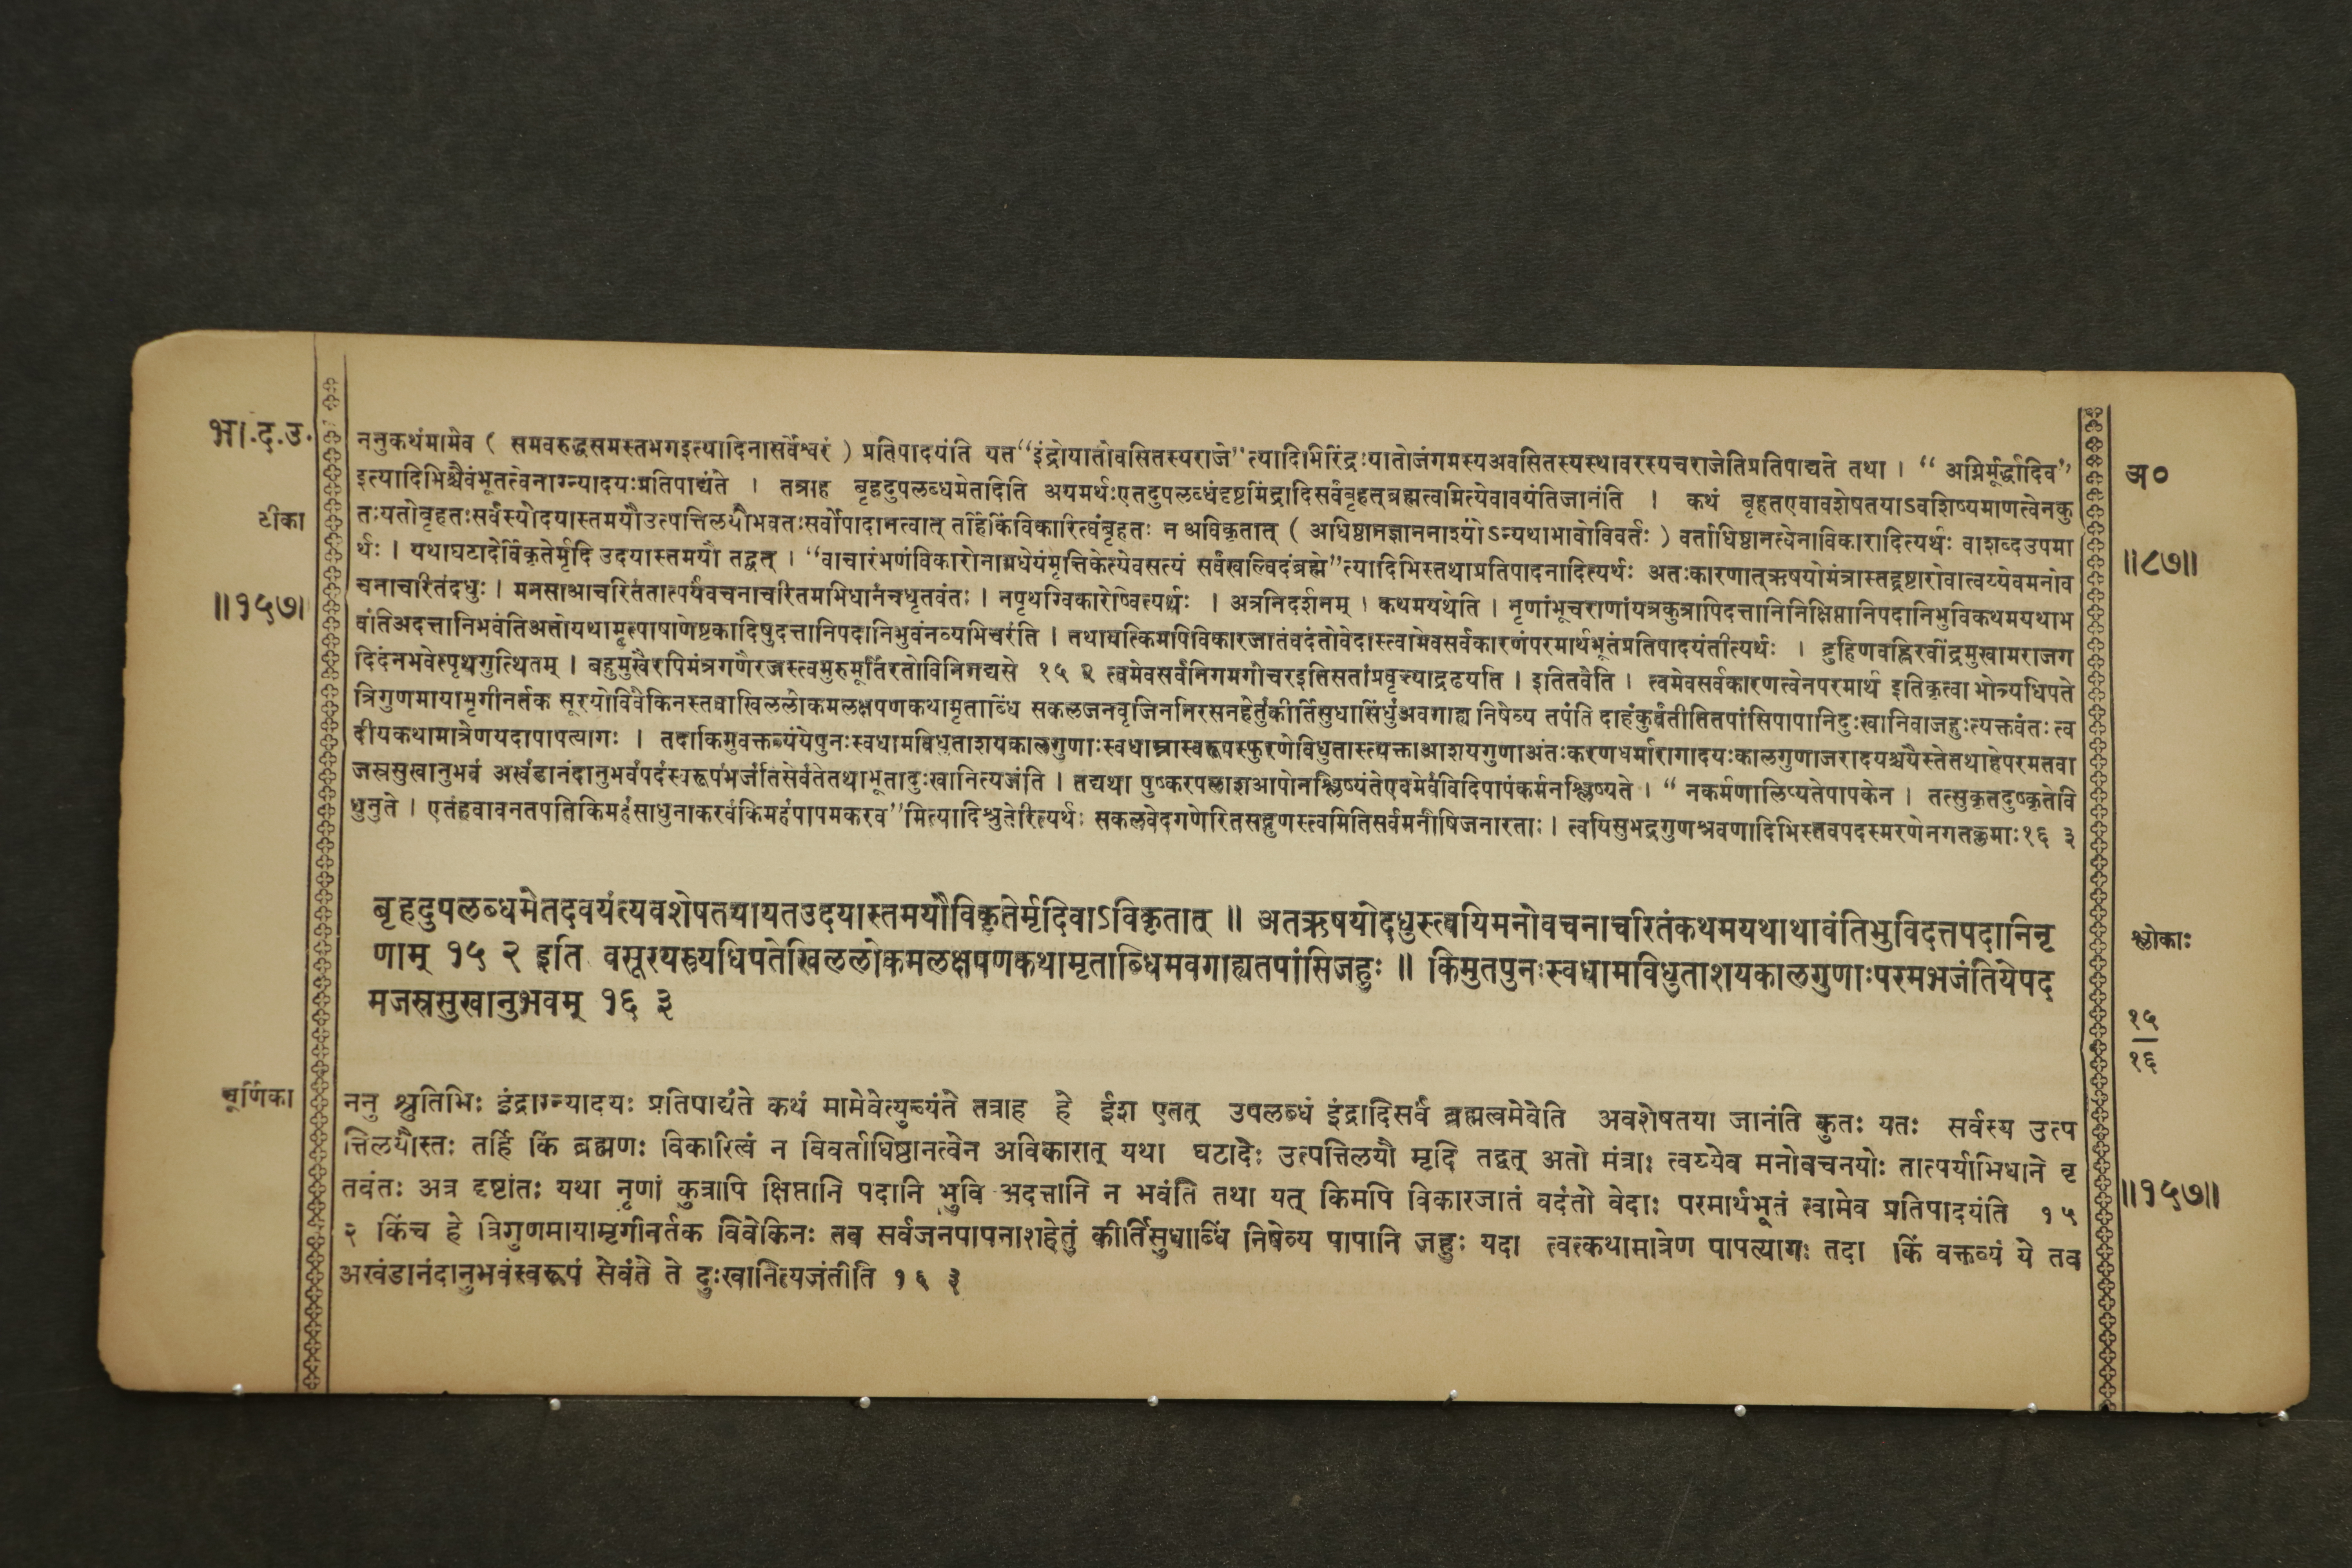 भा.द.उ.
ननुकथंमामेव ( समवरुद्धसमस्तभगइत्यादिनासर्वेश्वरं ) प्रतिपादयंति यत“इंद्रोयातोवसितस्यराजे”त्यादिभिरिंद्रःयातोजंगमस्यअवसितस्यस्थावरस्यचराजेतिप्रतिपाद्यते तथा । “ अग्निर्मूर्द्धादिव”
अ०
इत्यादिभिश्चैवंभूतत्वेनाग्न्यादयःप्रतिपाद्यंते । तत्राह बृहदुपलब्धमेतदिति अयमर्थःएतदुपलब्धंदृष्टमिंद्रादिसर्वंबृहत्ब्रह्मत्वामित्येवावयंतिजानंति । कथं बृहतएवावशेषतयाऽवशिष्यमाणत्वेनकु
टीका
तःयतोबृहतःसर्वस्योदयास्तमयौउत्पत्तिलयौभवतःसर्वोपादानत्वात् तर्हिकिंविकारित्वंबृहतः न अविकृतात् ( अधिष्ठानज्ञाननाश्यो ऽन्यथाभावोविवर्तः ) वर्ताधिष्ठानत्वेनाविकारादित्यर्थः वाशब्दउपमा
र्थः । यथाघटादेर्विकृतेर्मृदि उदयास्तमयौ तद्वत् । “वाचारंभणंविकारोनामधेयंमृत्तिकेत्येवसत्यं सर्वंखल्विदंब्रह्मे”त्यादिभिस्तथाप्रतिपादनादित्यर्थः अतःकारणात्ऋषयोमंत्रास्तद्द्रष्टारोवात्वय्येवमनोव
॥८७॥
चनाचरितंदधुः । मनसाआचरितंतात्पर्यंवचनाचरितमभिधानंचधृतवंतः । नपृथग्विकारेष्वित्यर्थः । अत्रनिदर्शनम् । कथमयथेति । नृणांभूचराणांयत्रकुत्रापिदत्तानिनिक्षिप्तानिपदानिभुविकथमयथाभ
॥१५७॥
वंतिअदत्तानिभवंतिअतोयथामृत्पाषाणेष्टकादिषुदत्तानिपदानिभुवंनव्यभिचरंति । तथायत्किमपिविकारजातंवदंतोवेदास्त्वामेवसर्वकारणंपरमार्थभूतंप्रतिपादयंतीत्यर्थः । द्रुहिणवह्निरवींद्रमुखामराजग
दिदंनभवेत्पृथगुत्थितम् । बहुमुखैरपिमंत्रगणैरजस्त्वमुरुमूर्तिरतोविनिगद्यसे १५ २ त्वमेवसर्वनिगमगोचरइतिसतांप्रवृत्त्याद्रढयति । इतितवेति । त्वमेवसर्वकारणत्वेनपरमार्थ इतिकृत्वा भोत्र्यधिपते
त्रिगुणमायामृगीनर्तक सूरयोविवेकिनस्तवाखिललोकमलक्षपणकथामृताब्धिं सकलजनवृजिननिरसनहेतुंकीर्तिसुधासिंधुंअवगाह्य निषेव्य तपंति दाहंकुर्वंतीतितपांसिपापानिदुःखानिवाजहुःत्यक्तवंतः त्व
दीयकथामात्रेणयदापापत्यागः । तदाकिमुवक्तव्यंयेपुनःस्वधामविधुताशयकालगुणाःस्वधाम्नास्वरूपस्फुरणेविधुतास्त्यक्ताआशयगुणाअंतःकरणधर्मारागादयःकालगुणाजरादयश्चयैस्तेतथाहेपरमतवा
जस्रसुखानुभवं अखंडानंदानुभवंपदंस्वरूपंभजंतिसेवंतेतथाभूतादुःखानित्यजंति । तद्यथा पुष्करपलाशआपोनश्लिष्यंतेएवमेवंविदिपापंकर्मनश्लिष्यते । “ नकर्मणालिप्यतेपापकेन । तत्सुकृतदुष्कृतेवि
धुनुते । एतंहवावनतपतिकिमहंसाधुनाकरवंकिमहंपापमकरव”मित्यादिश्रुतेरित्यर्थः सकलवेदगणेरितसद्गुणस्त्वमितिसर्वमनीषिजनारताः । त्वयिसुभद्रगुणश्रवणादिभिस्तवपदस्मरणेनगतक्लमाः१६ ३
बृहदुपलब्धमेतदवयंत्यवशेषतयायतउदयास्तमयौविकृतेर्मृदिवाऽविकृतात् ॥ अतऋषयोदधुस्त्वयिमनोवचनाचरितंकथमयथाथावंतिभुविदत्तपदानिनृ
श्लोकाः
णाम् १५ २ इति वसूरयस्त्र्यधिपतेखिललोकमलक्षपणकथामृताब्धिमवगाह्यतपांसिजहुः ॥ किमुतपुनःस्वधामविधुताशयकालगुणाःपरमभजंतियेपद
मजस्रसुखानुभवम् १६ ३
१५
१६
चूर्णिका
ननु श्रुतिभिः इंद्राग्न्यादयः प्रतिपाद्यंते कथं मामेवेत्युच्यंते तत्राह हे ईश एतत् उपलब्धं इंद्रादिसर्वं ब्रह्मत्वमेवेति अवशेषतया जानंति कुतः यतः सर्वस्य उत्प
त्तिलयौस्तः तर्हि किं ब्रह्मणः विकारित्वं न विवर्ताधिष्ठानत्वेन अविकारात् यथा घटादेः उत्पत्तिलयौ मृदि तद्वत् अतो मंत्राः त्वय्येव मनोवचनयोः तात्पर्याभिधाने धृ
तवंतः अत्र दृष्टांतः यथा नृणां कुत्रापि क्षिप्तानि पदानि भुवि अदत्तानि न भवंति तथा यत् किमपि विकारजातं वदंतो वेदाः परमार्थभूतं त्वामेव प्रतिपादयंति १५
॥१५७॥
२ किंच हे त्रिगुणमायामृगीनर्तक विवेकिनः तव सर्वजनपापनाशहेतुं कीर्तिसुधाब्धिं निषेव्य पापानि जहुः यदा त्वत्कथामात्रेण पापत्यागः तदा किं वक्तव्यं ये तव
अखंडानंदानुभवंस्वरूपं सेवंते ते दुःखानित्यजंतीति १६ ३